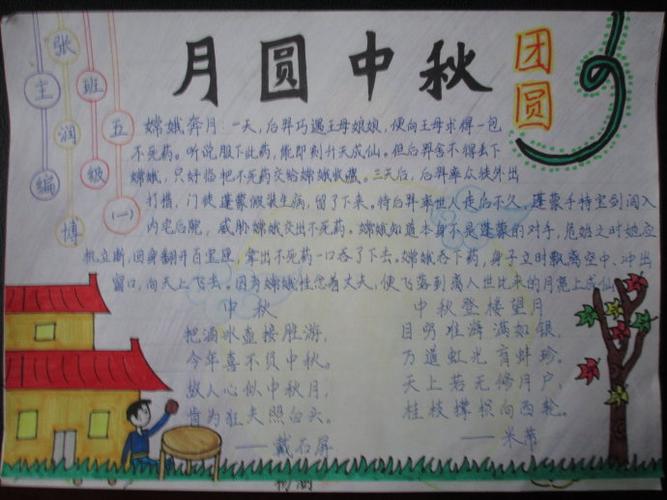 月圆中秋
团圆
主编
张润博
班级
五(一)
嫦娥奔月:一天,后羿巧遇王母娘娘,便向王母求得一包
不死药。听说服下此药,能即刻升天成仙。但后羿舍不得丢下
嫦娥,只好临把不死药交给嫦娥收藏。三天后,后羿率众徒外出
打猎,门徒蓬蒙假装生病,留了下来。待后羿率世人走后不久,蓬蒙手持宝剑闯入
内宅后院,威胁嫦娥交出不死药。嫦娥知道本身不是蓬蒙的对手,危姓之时她应
机立断,回身翻开百宝匣,拿出不死药一口吞了下去。嫦娥吞下药,身子立时飘离空中,冲出
窗口,向天上飞去。因为嫦娥牲念着丈夫,便飞落到离人世比来的月亮上成仙
中秋
把酒冰壶接胜游,
今年喜不负中秋。
故人心似中秋月,
肯为狂夫照白头。
——戴石屏
中秋登楼望月
目穷淮海满如银,
万道虹光育蚌珍。
天上若无修月户,
桂枝撑损向西轮。
——米芾